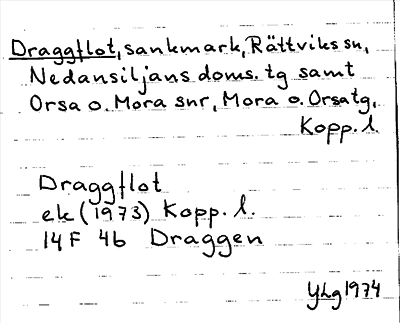 Draggflot, sankmark, Rättviks sn,
Nedansiljans doms. tg samt
Orsa o. Mora snr, Mora o. Orsa tg,
Kopp. l.
Draggflot
ek (1973) Kopp. l.
14F 4b Draggen
YLg 1974